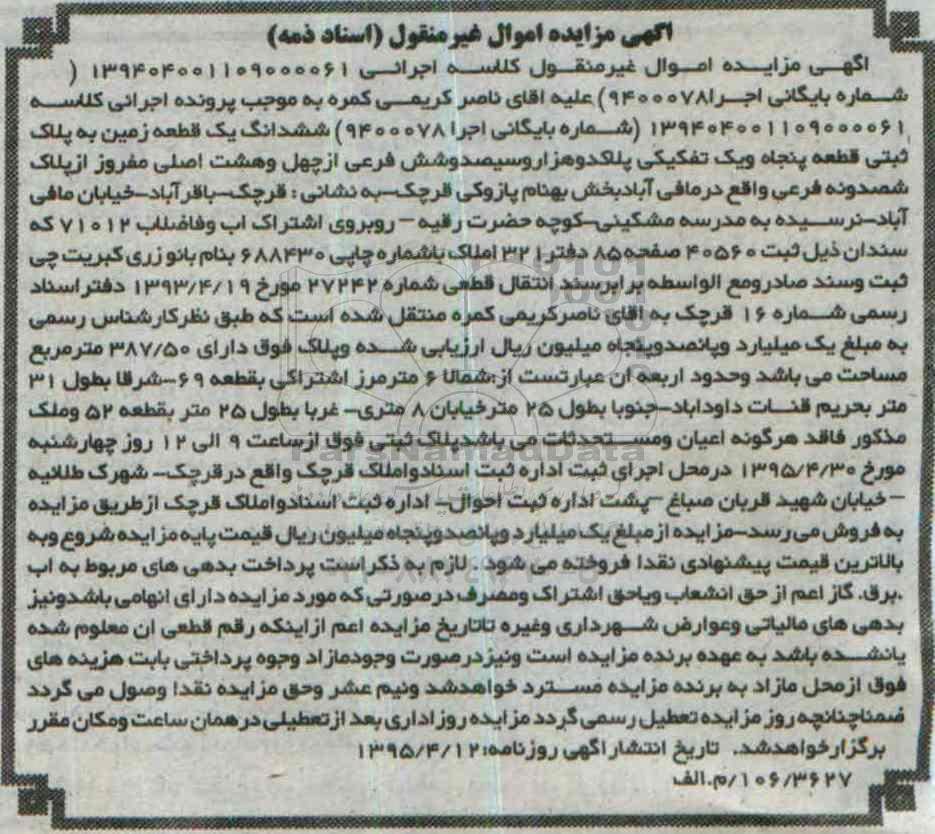 آگهی مزایده اموال غیرمنقول (اسناد ذمه)
آگهی مزایده اموال غیرمنقول کلاسه اجرائی ۱۳۹۴۰۴۰۰۱۱۰۹۰۰۰۰۶۱ (
شماره بایگانی اجرا۹۴۰۰۰۷۸) علیه اقای ناصر کریمی کمره به موجب پرونده اجرائی کلاسه
۱۳۹۴۰۴۰۰۱۱۰۹۰۰۰۰۶۱ (شماره بایگانی اجرا ۹۴۰۰۰۷۸) ششدانگ یک قطعه زمین به پلاک
ثبتی قطعه پنجاه ویک تفکیکی پلاکدوهزاروسیصدوشش فرعی ازچهل وهشت اصلی مفروز ازپلاک
شصدونه فرعی واقع درمافی آبادبخش بهنام پازوکی قرچک-به نشانی : قرچک-باقرآباد-خیابان مافی
آباد-نرسیده به مدرسه مشکینی-کوچه حضرت رقیه – روبروی اشتراک اب وفاضلاب ۷۱۰۱۲ که
سندان ذیل ثبت ۴۰۵۶۰ صفحه۸۵ دفتر۳۲۱ املاک باشماره چاپی ۶۸۸۴۳۰ بنام بانو زری کبریت چی
ثبت وسند صادرومع الواسطه برابرسند انتقال قطعی شماره ۲۷۲۴۲ مورخ ۱۳۹۳/۴/۱۹ دفتراسناد
رسمی شماره ۱۶ قرچک به اقای ناصرکریمی کمره منتقل شده است که طبق نظرکارشناس رسمی
به مبلغ یک میلیارد وپانصدوپنجاه میلیون ریال ارزیابی شده وپلاک فوق دارای ۳۸۷/۵۰ مترمربع
مساحت می باشد وحدود اربعه ان عبارتست از:شمالا ۶ مترمرز اشتراکی بقطعه ۶۹-شرقا بطول ۳۱
متر بحریم قنات داوداباد-جنوبا بطول ۲۵ مترخیابان ۸ متری- غربا بطول ۲۵ متر بقطعه ۵۲ وملک
مذکور فاقد هرگونه اعیان ومستحدثات می باشدپلاک ثبتی فوق ازساعت ۹ الی ۱۲ روز چهارشنبه
مورخ ۱۳۹۵/۴/۳۰ درمحل اجرای ثبت اداره ثبت اسنادواملاک قرچک واقع درقرچک- شهرک طلائیه
– خیابان شهید قربان صباغ –پشت اداره ثبت احوال- اداره ثبت اسنادواملاک قرچک ازطریق مزایده
به فروش می رسد-مزایده ازمبلغ یک میلیارد وپانصدوپنجاه میلیون ریال قیمت پایه مزایده شروع وبه
بالاترین قیمت پیشنهادی نقدا فروخته می شود. لازم به ذکراست پرداخت بدهی های مربوط به اب
،برق، گاز اعم از حق انشعاب ویاحق اشتراک ومصرف درصورتی که مورد مزایده دارای انهامی باشدونیز
بدهی های مالیاتی وعوارض شهرداری وغیره تاتاریخ مزایده اعم ازاینکه رقم قطعی ان معلوم شده
یانشده باشد به عهده برنده مزایده است ونیزدرصورت وجودمازاد وجوه پرداختی بابت هزینه های
فوق ازمحل مازاد به برنده مزایده مسترد خواهدشد ونیم عشر وحق مزایده نقدا وصول می گردد
ضمناچنانچه روز مزایده تعطیل رسمی گردد مزایده روزاداری بعد ازتعطیلی درهمان ساعت ومکان مقرر
برگزارخواهدشد. تاریخ انتشاراگهی روزنامه:۱۳۹۵/۴/۱۲
۱۰۶/۳۶۲۷/م.الف
ParsNamadData